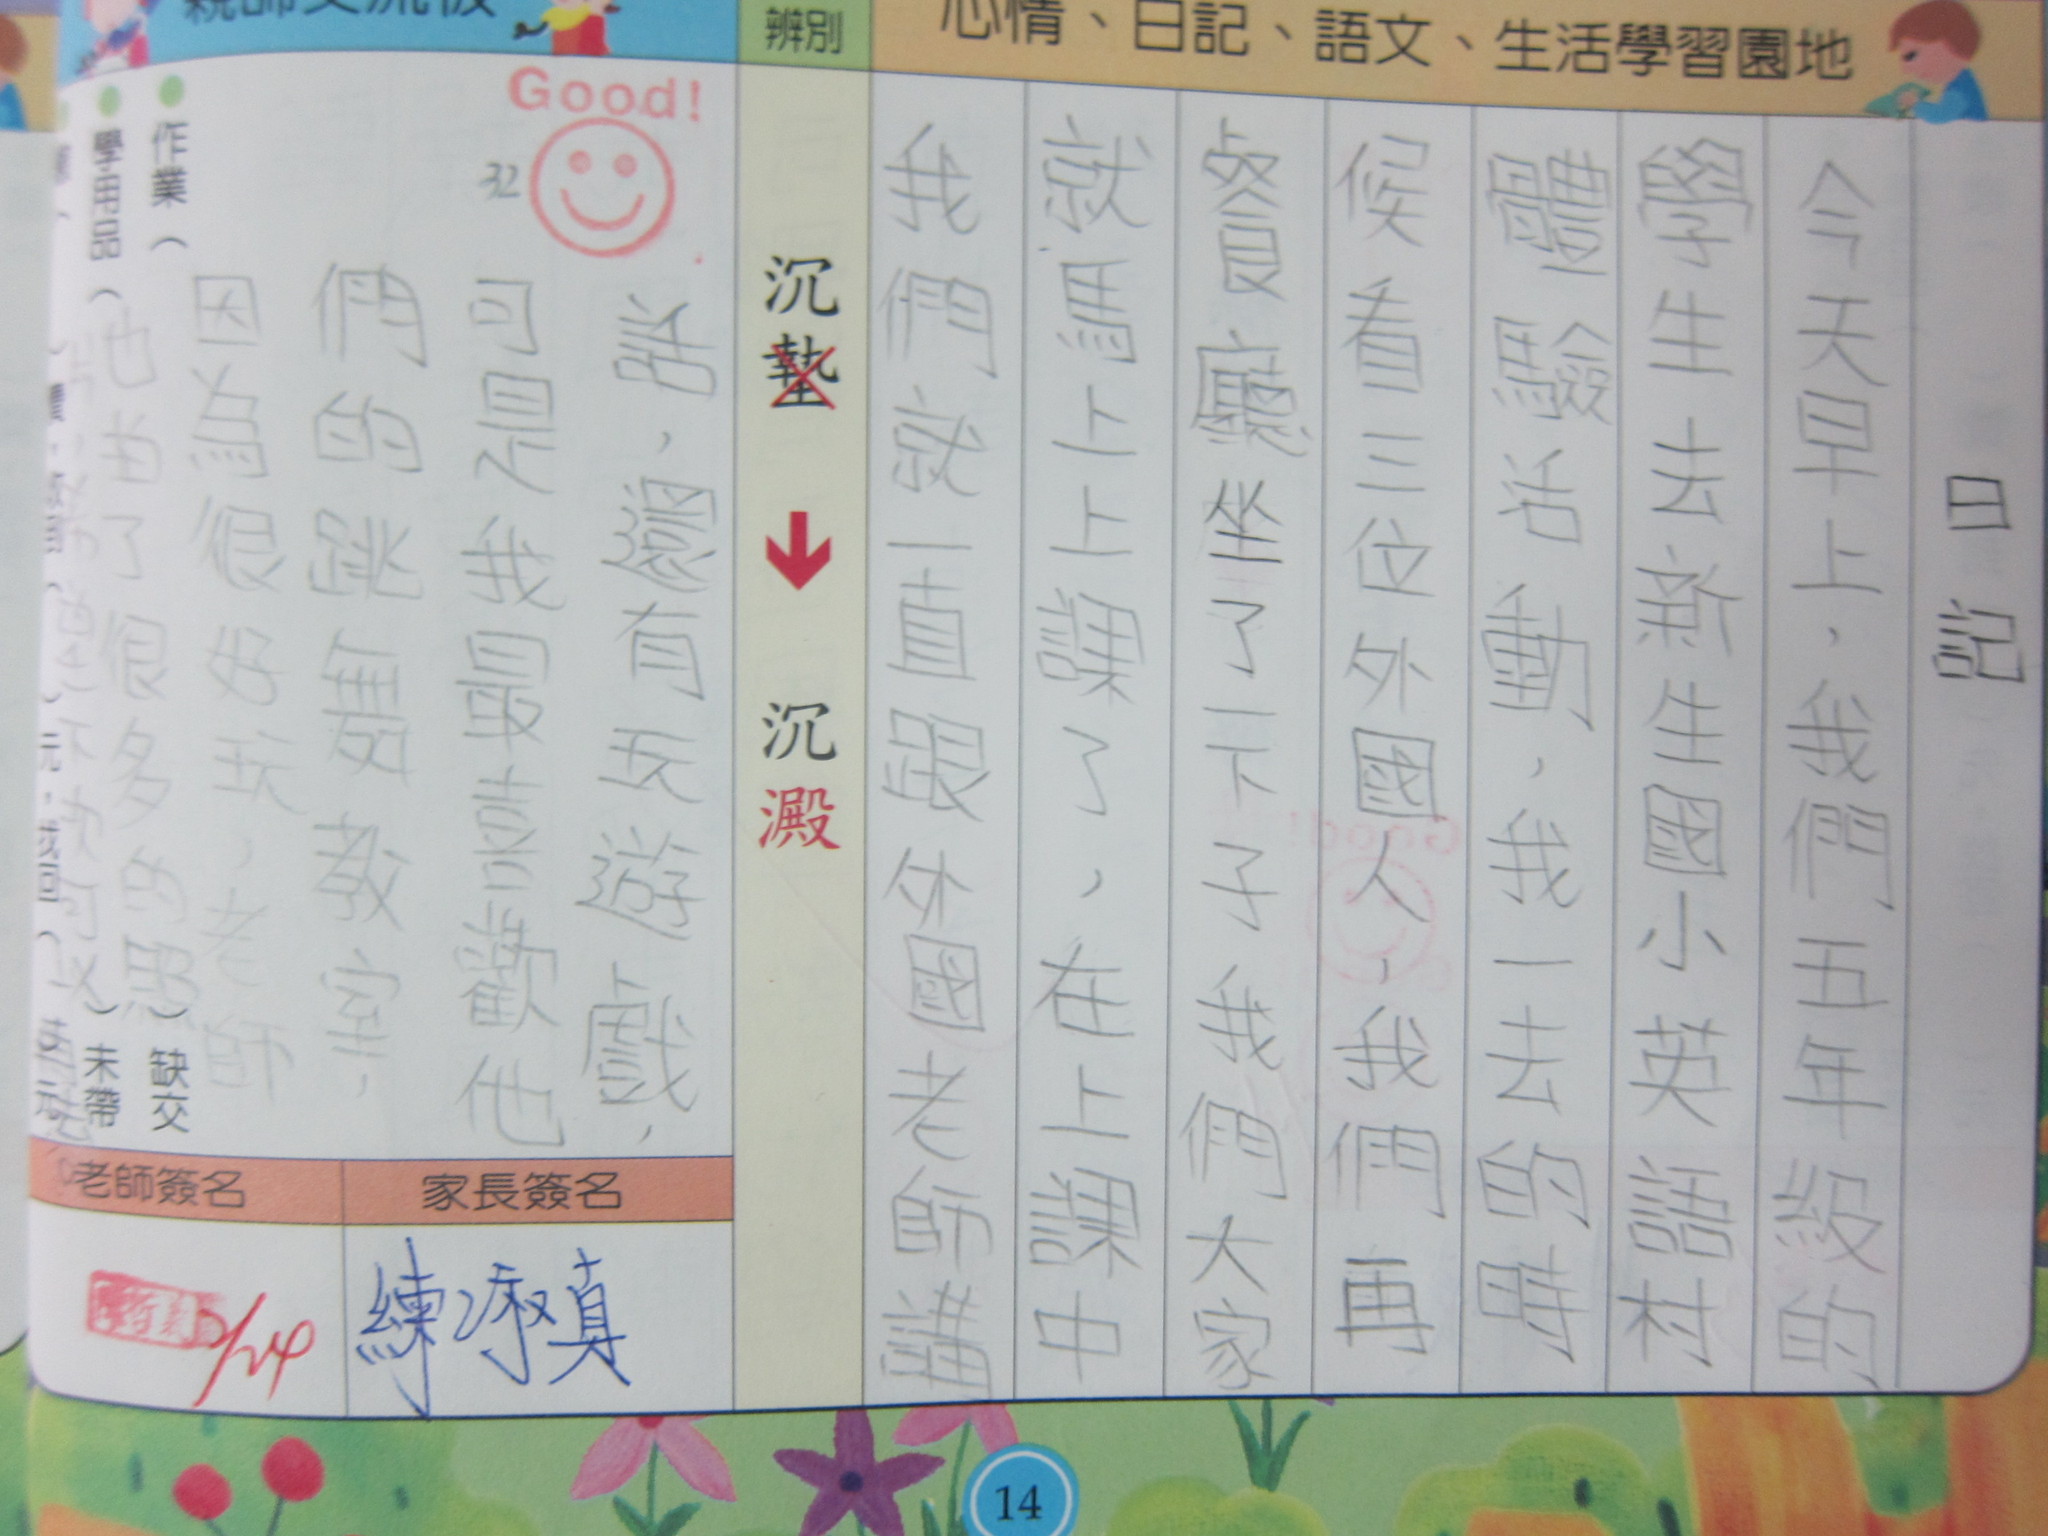 心情、日記、語文、生活學習園地
日記
今天早上，我們五年級的
學生去新生國小英語村
體驗活動，我一去的時
候看三位外國人，我們再
餐廳坐了一下子我們大家
就馬上上課了，在上課中
我們就一直跟外國老師講
辨別
沉墊
沉澱
親師交流板
Good!
32
話，還有玩遊戲，
可是我最喜歡他
們的跳舞教室，
因為很好玩，老師
也曲了很多的照
作業（ ）缺交
學用品（ ）未帶
老師簽名
家長簽名
練淑真
/24
14